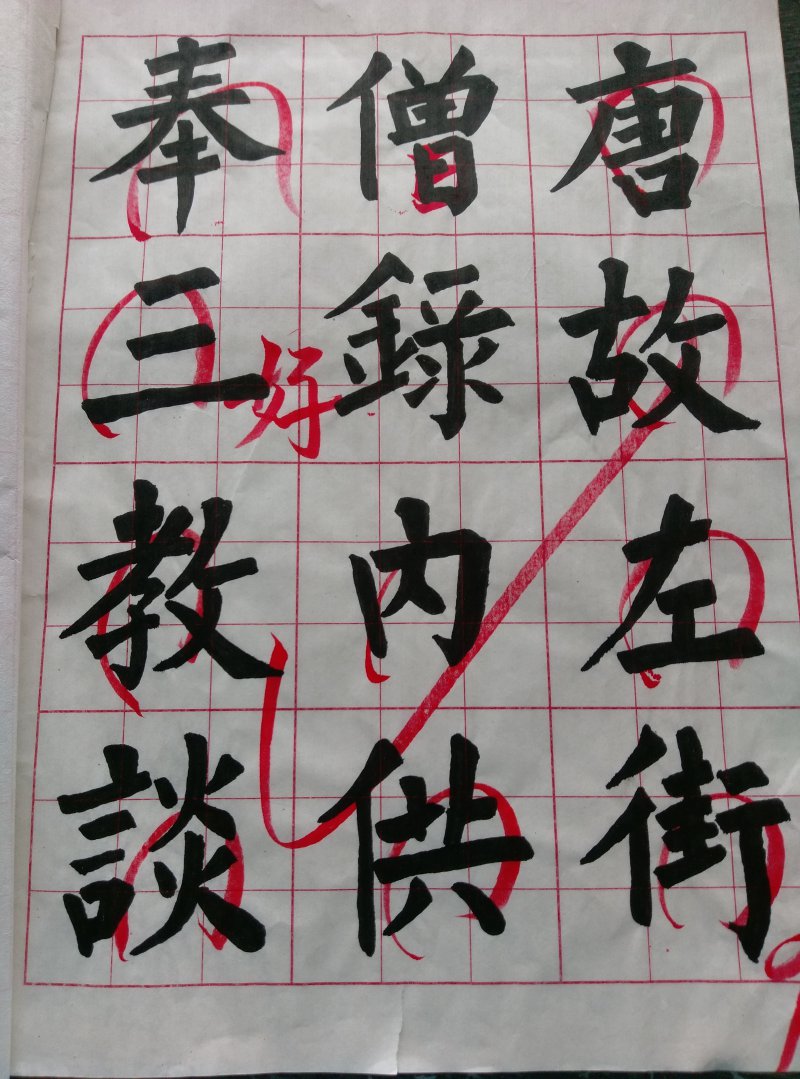 唐故左街
僧錄內供
奉三教談
好